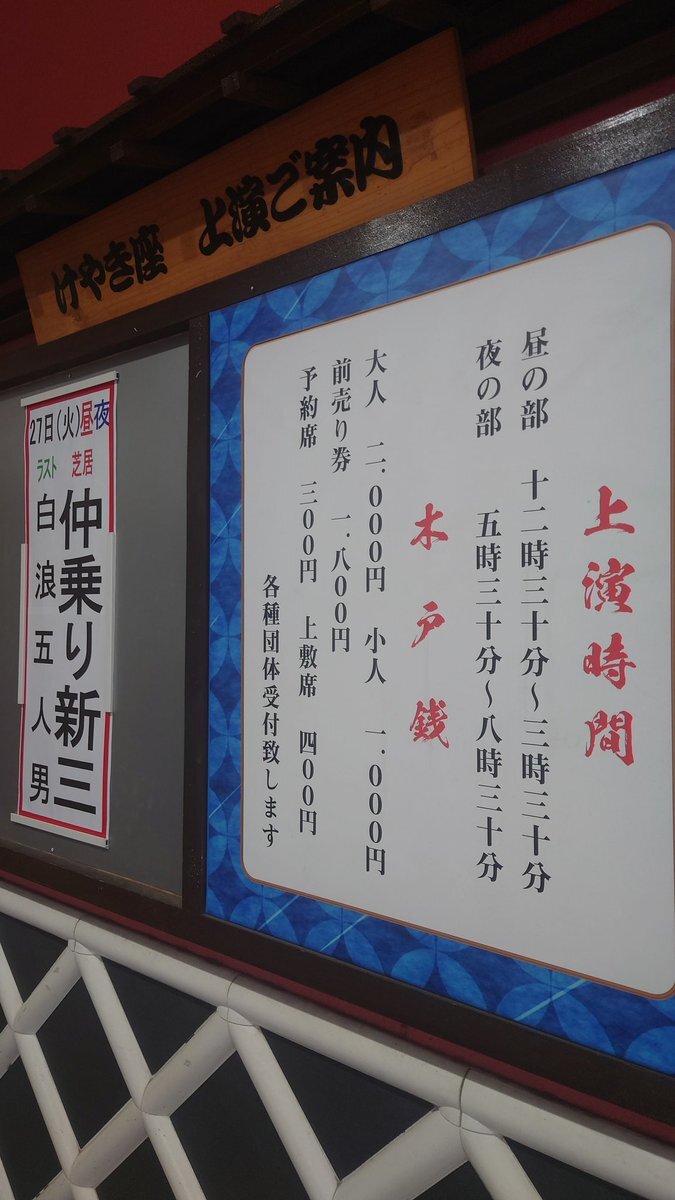 けやき座 上演ご案内
上演時間
昼の部 十二時三十分〜三時三十分
夜の部 五時三十分〜八時三十分
木戸銭
大人 二.000円 小人 一.000円
前売り券 一.八00円
予約席 三00円 上敷席 四00円
各種団体受付致します
27日(火)昼夜
芝居 仲乗り新三
ラスト 白浪五人男